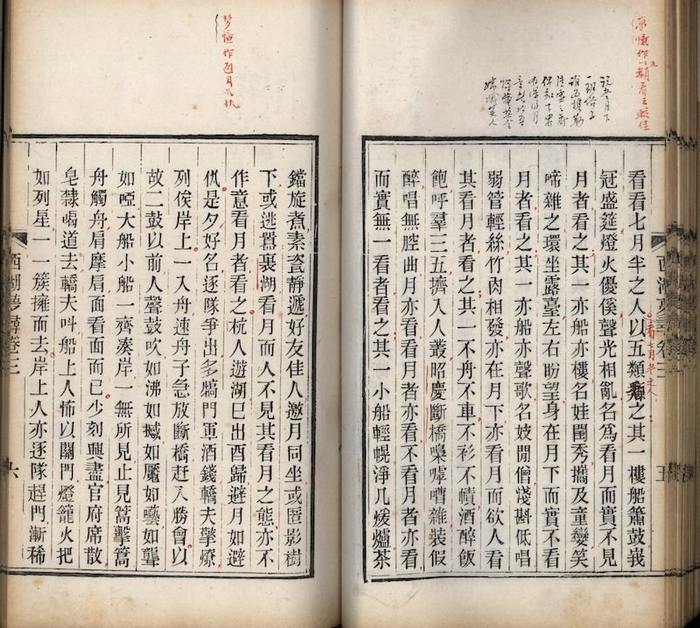 看看七月半之人以五類看之其一樓船簫鼓峩
冠盛筵燈火優傒聲光相亂名為看月而實不見
月者看之其一亦船亦樓名娃閨秀攜及童孌笑
啼雜之環坐露臺左右盼望身在月下而實不看
月者看之其一亦船亦聲歌名妓閒僧淺斟低唱
弱管輕絲竹肉相發亦在月下亦看月而欲人看
其看月者看之其一不舟不車不衫不幘酒醉飯
飽呼羣三五擠入人叢昭慶斷橋嘄嘑嘈雜裝假
醉唱無腔曲月亦看看月者亦看不看月者亦看
而實無一看者看之其一小船輕幌淨几煖爐茶
西湖夢尋卷三
五
鐺旋煮素瓷靜遞好友佳人邀月同坐或匿影樹
下或逃囂裏湖看月而人不見其看月之態亦不
作意看月者看之杭人遊湖巳出酉歸避月如避
仇是夕好名逐隊爭出多犒門軍酒錢轎夫擎燎
列俟岸上一入舟速舟子急放斷橋赶入勝會以
故二鼓以前人聲鼓吹如沸如撼如魘如囈如聾
如啞大船小船一齊湊岸一無所見止見篙擊篙
舟觸舟肩摩肩面看面而已少刻興盡官府席散
皂隸喝道去轎夫呌船上人怖以關門燈籠火把
如列星一一簇擁而去岸上人亦逐隊趕門漸稀
西湖夢尋卷三
六